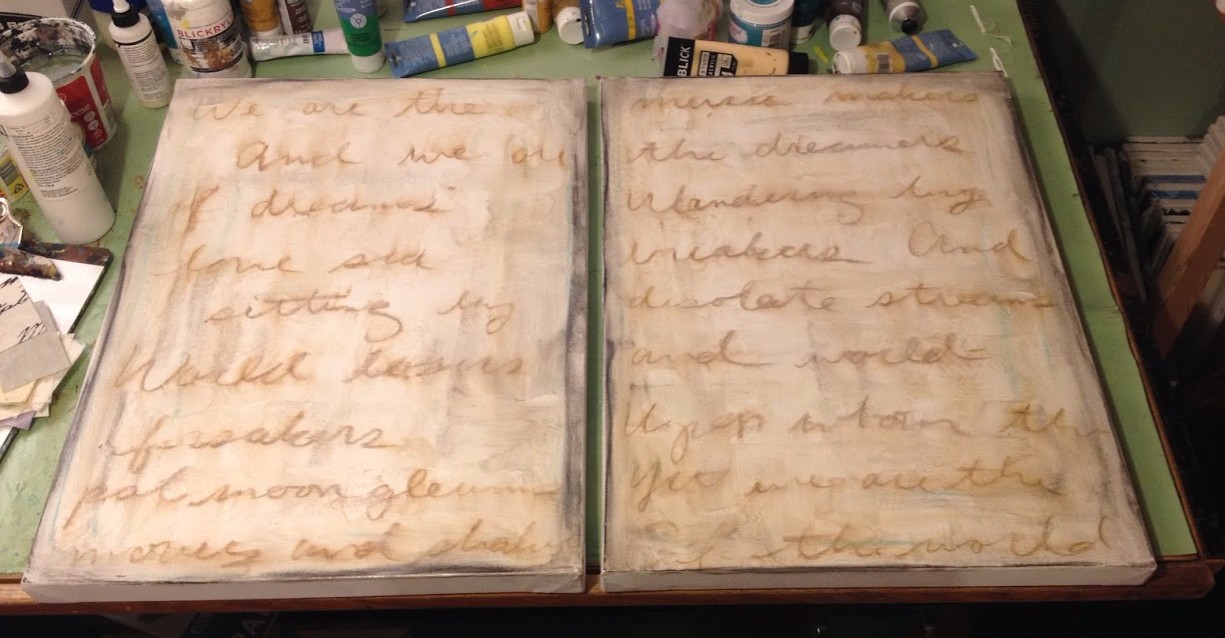 We are the music makers
And we are the dreamers
of dreams Wandering by
lone sea breakers And
sitting by desolate streams
World losers and world-
forsakers Upon whom the
pale moon gleams Yet we are the
movers and shakers Of the world
BLICKRYL
BLICK